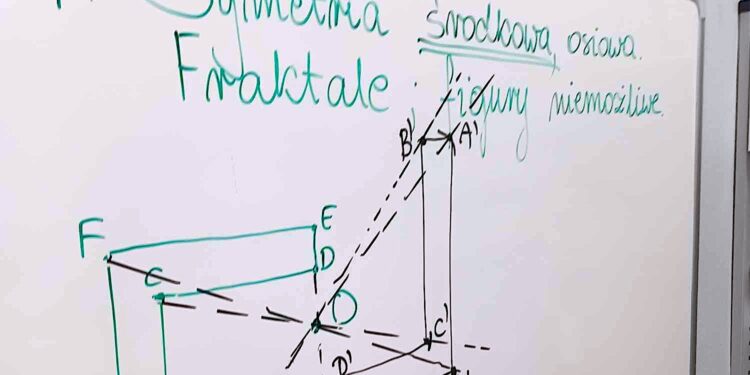 Symetria środkowa, osiowa.
Fraktale; figury niemożliwe.
B' A'
E
F
D
C
O
C'
D'